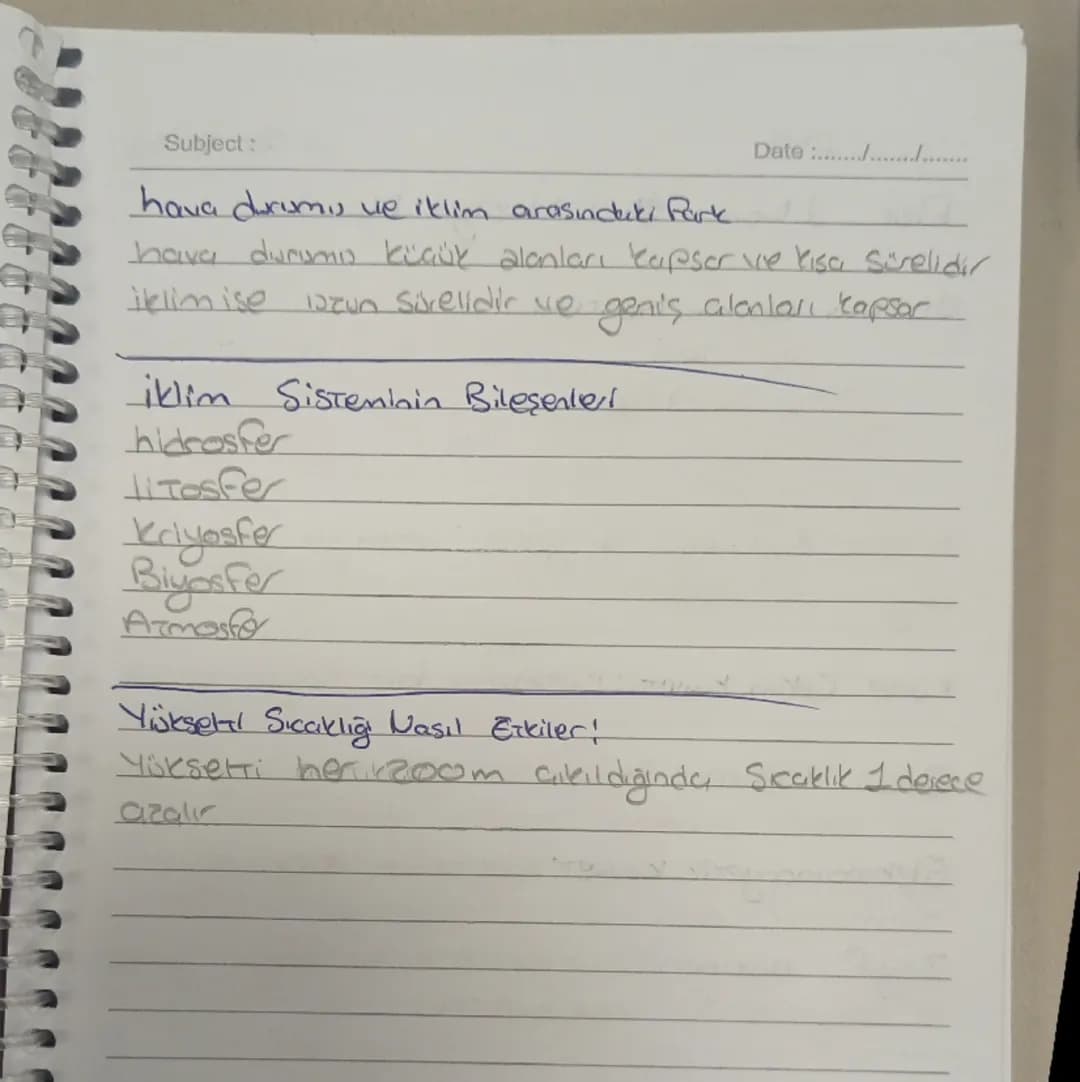 Subject :
Date :......./......./.......
hava durumu ve iklim arasındaki Fark
hava durumu küçük alanları kapsar ve kısa sürelidir
iklim ise uzun sürelidir ve geniş alanları kapsar
iklim Sisteminin Bileşenleri
hidrosfer
liTosfer
Kriyosfer
Biyosfer
ATmosfer
Yükselti Sıcaklığı Nasıl ETkiler!
Yükselti her 200m çıkıldığında Sıcaklık 1 derece
azalır